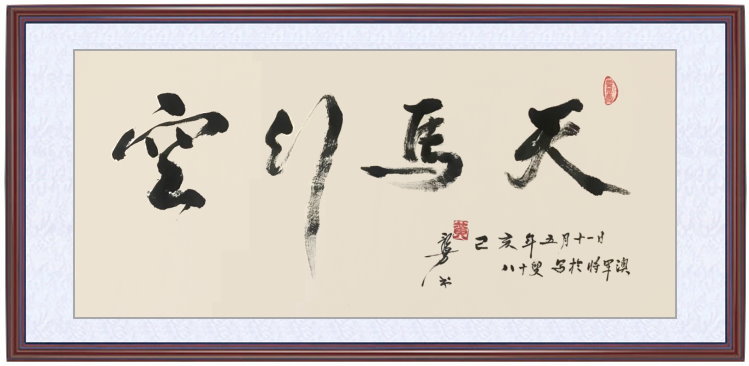 天馬行空
己亥年五月十一日
八十叟 写於將軍澳